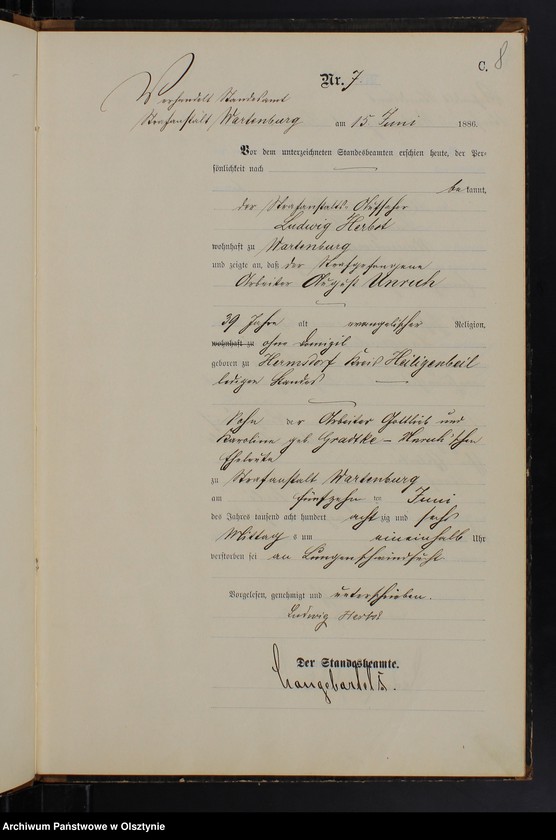 C. 8
Nr. 7.
Verhandelt Standesamt
Strafanstalt Wartenburg am 15 Juni 1886.
Vor dem unterzeichneten Standesbeamten erschien heute, der Per-
sönlichkeit nach
be kannt,
der Strafanstalts-Aufseher
Ludwig Herbst
wohnhaft zu Wartenburg
und zeigte an, daß der Strafgefangene
Arbeiter August Unruh
39 Jahre alt evangelischer Religion,
wohnhaft zu ohne Domizil
geboren zu Hermsdorf Kreis Heiligenbeil
ledigen Standes
Sohn der Arbeiter Gottlieb und
Karoline geb Gradtke - Unruh'schen
Eheleute
zu Strafanstalt Wartenburg
am fünfzehn ten Juni
des Jahres tausend acht hundert acht zig und sechs
Mittag s um eineinhalb Uhr
verstorben sei an Lungenschwindsucht
Vorgelesen, genehmigt und unterschrieben.
Ludwig Herbst
Der Standesbeamte.
Archiwum Państwowe w Olsztynie